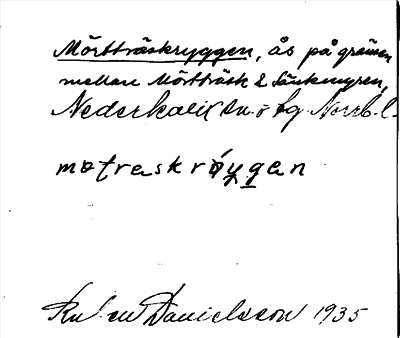 Mörtträskryggen, ås på gränsen
mellan Mörtträsk & Länkmyren,
Nederkalix sn. o tg. Norrb. l.
motraskröygen
Ruben Danielsson 1935